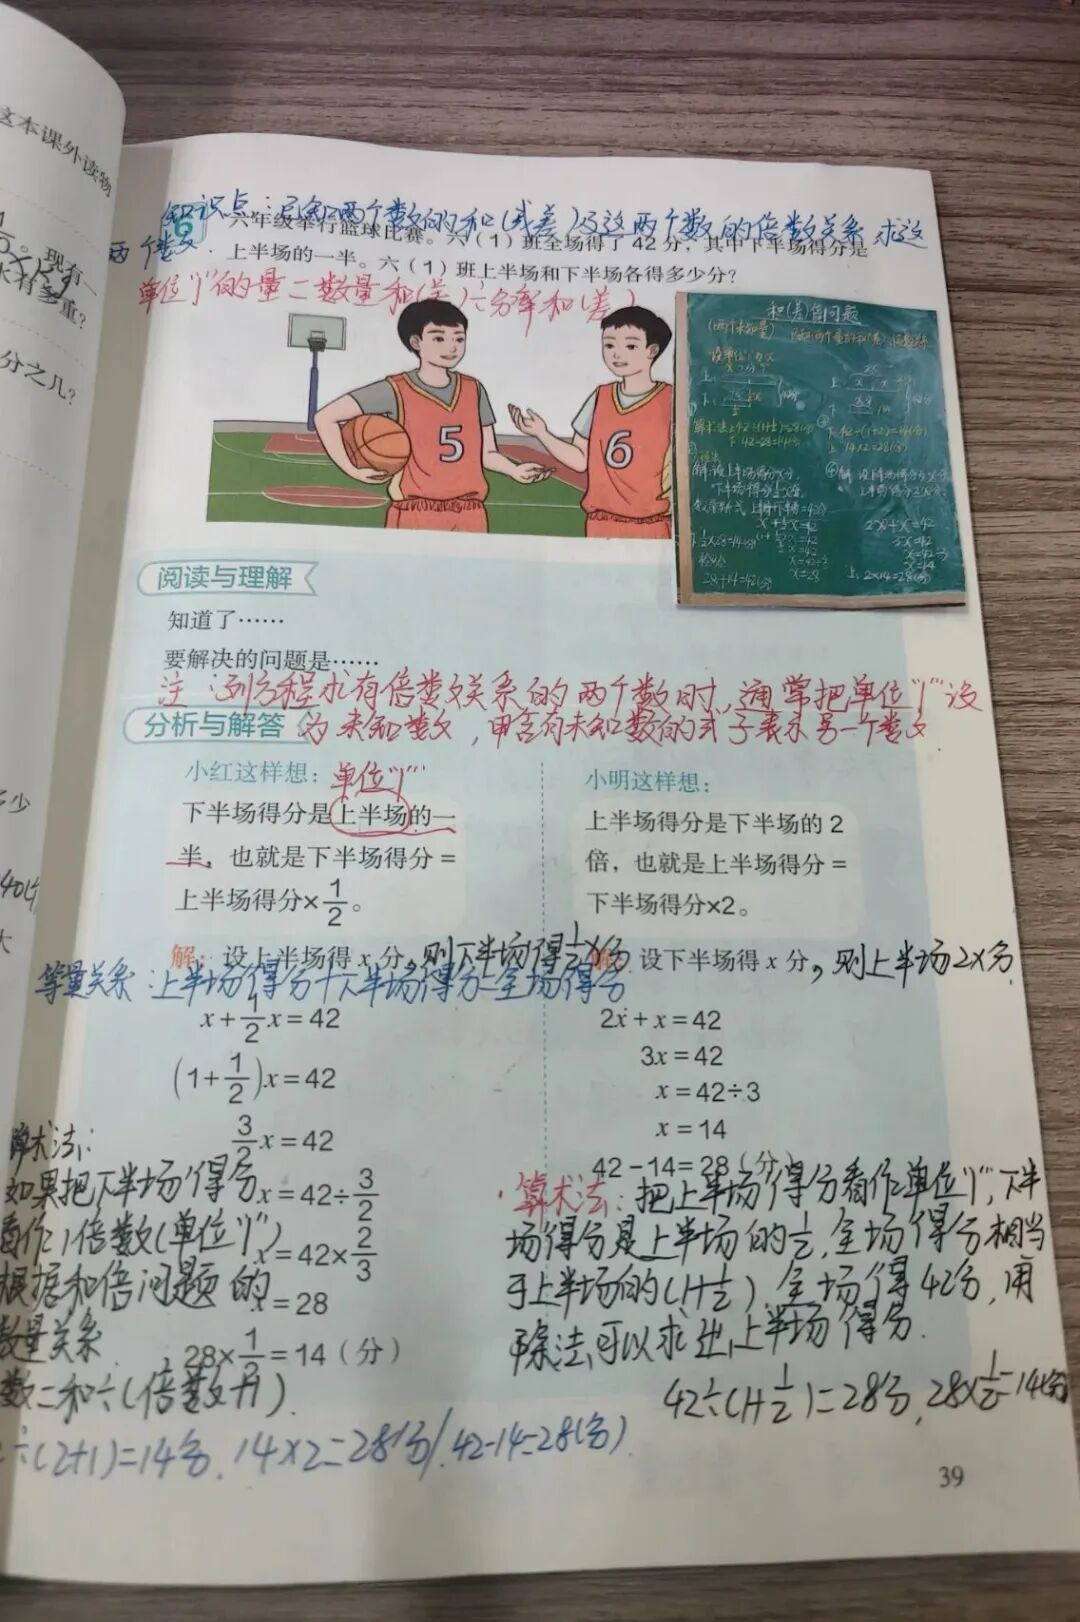 这本课外读物
现有一
重?
分之几?
知识点:已知两个数的和(或差)及这两个数的倍数关系,求这
两个数.
6 六年级举行篮球比赛。六(1)班全场得了 42 分,其中下半场得分是
上半场的一半。六(1)班上半场和下半场各得多少分?
单位"1"的量=数量和(差)÷分率和(差)
5
6
和(差)倍问题
(两个未知量)
算术法
下 42-28=14(分)
下 42÷(1+2)=14(分)
上 14×2=28(分)
解:设上半场得分x分.
x+½x=42
x=28
28+14=42(分)
2x+x=42
3x=42
x=42÷3
x=14
上:2×14=28(分)
阅读与理解
知道了……
要解决的问题是……
注:列方程求有倍数关系的两个数时,通常把单位"1"设
为未知数,用含有未知数的式子表示另一个数.
分析与解答
小红这样想:单位"1"
下半场得分是上半场的一
半,也就是下半场得分=
上半场得分×1/2。
解:设上半场得 x 分,则下半场得½x分
等量关系:上半场得分+下半场得分=全场得分
x+1/2x=42
(1+1/2)x=42
3/2x=42
x=42÷3/2
x=42×2/3
x=28
28×1/2=14(分)
小明这样想:
上半场得分是下半场的 2
倍,也就是上半场得分=
下半场得分×2。
解:设下半场得 x 分,则上半场2x分.
2x+x=42
3x=42
x=42÷3
x=14
42-14=28(分)
算术法:
如果把下半场得分
看作1倍数(单位"1")
根据和倍问题的
数量关系
数=和÷(倍数+1).
÷(2+1)=14分. 14×2=28(分)/42-14=28(分).
算术法:把上半场得分看作单位"1",下半
场得分是上半场的½,全场得分相当
于上半场的(1+½).全场得42分,用
除法可以求出上半场得分.
42÷(1+½)=28分. 28×½=14(分)
39